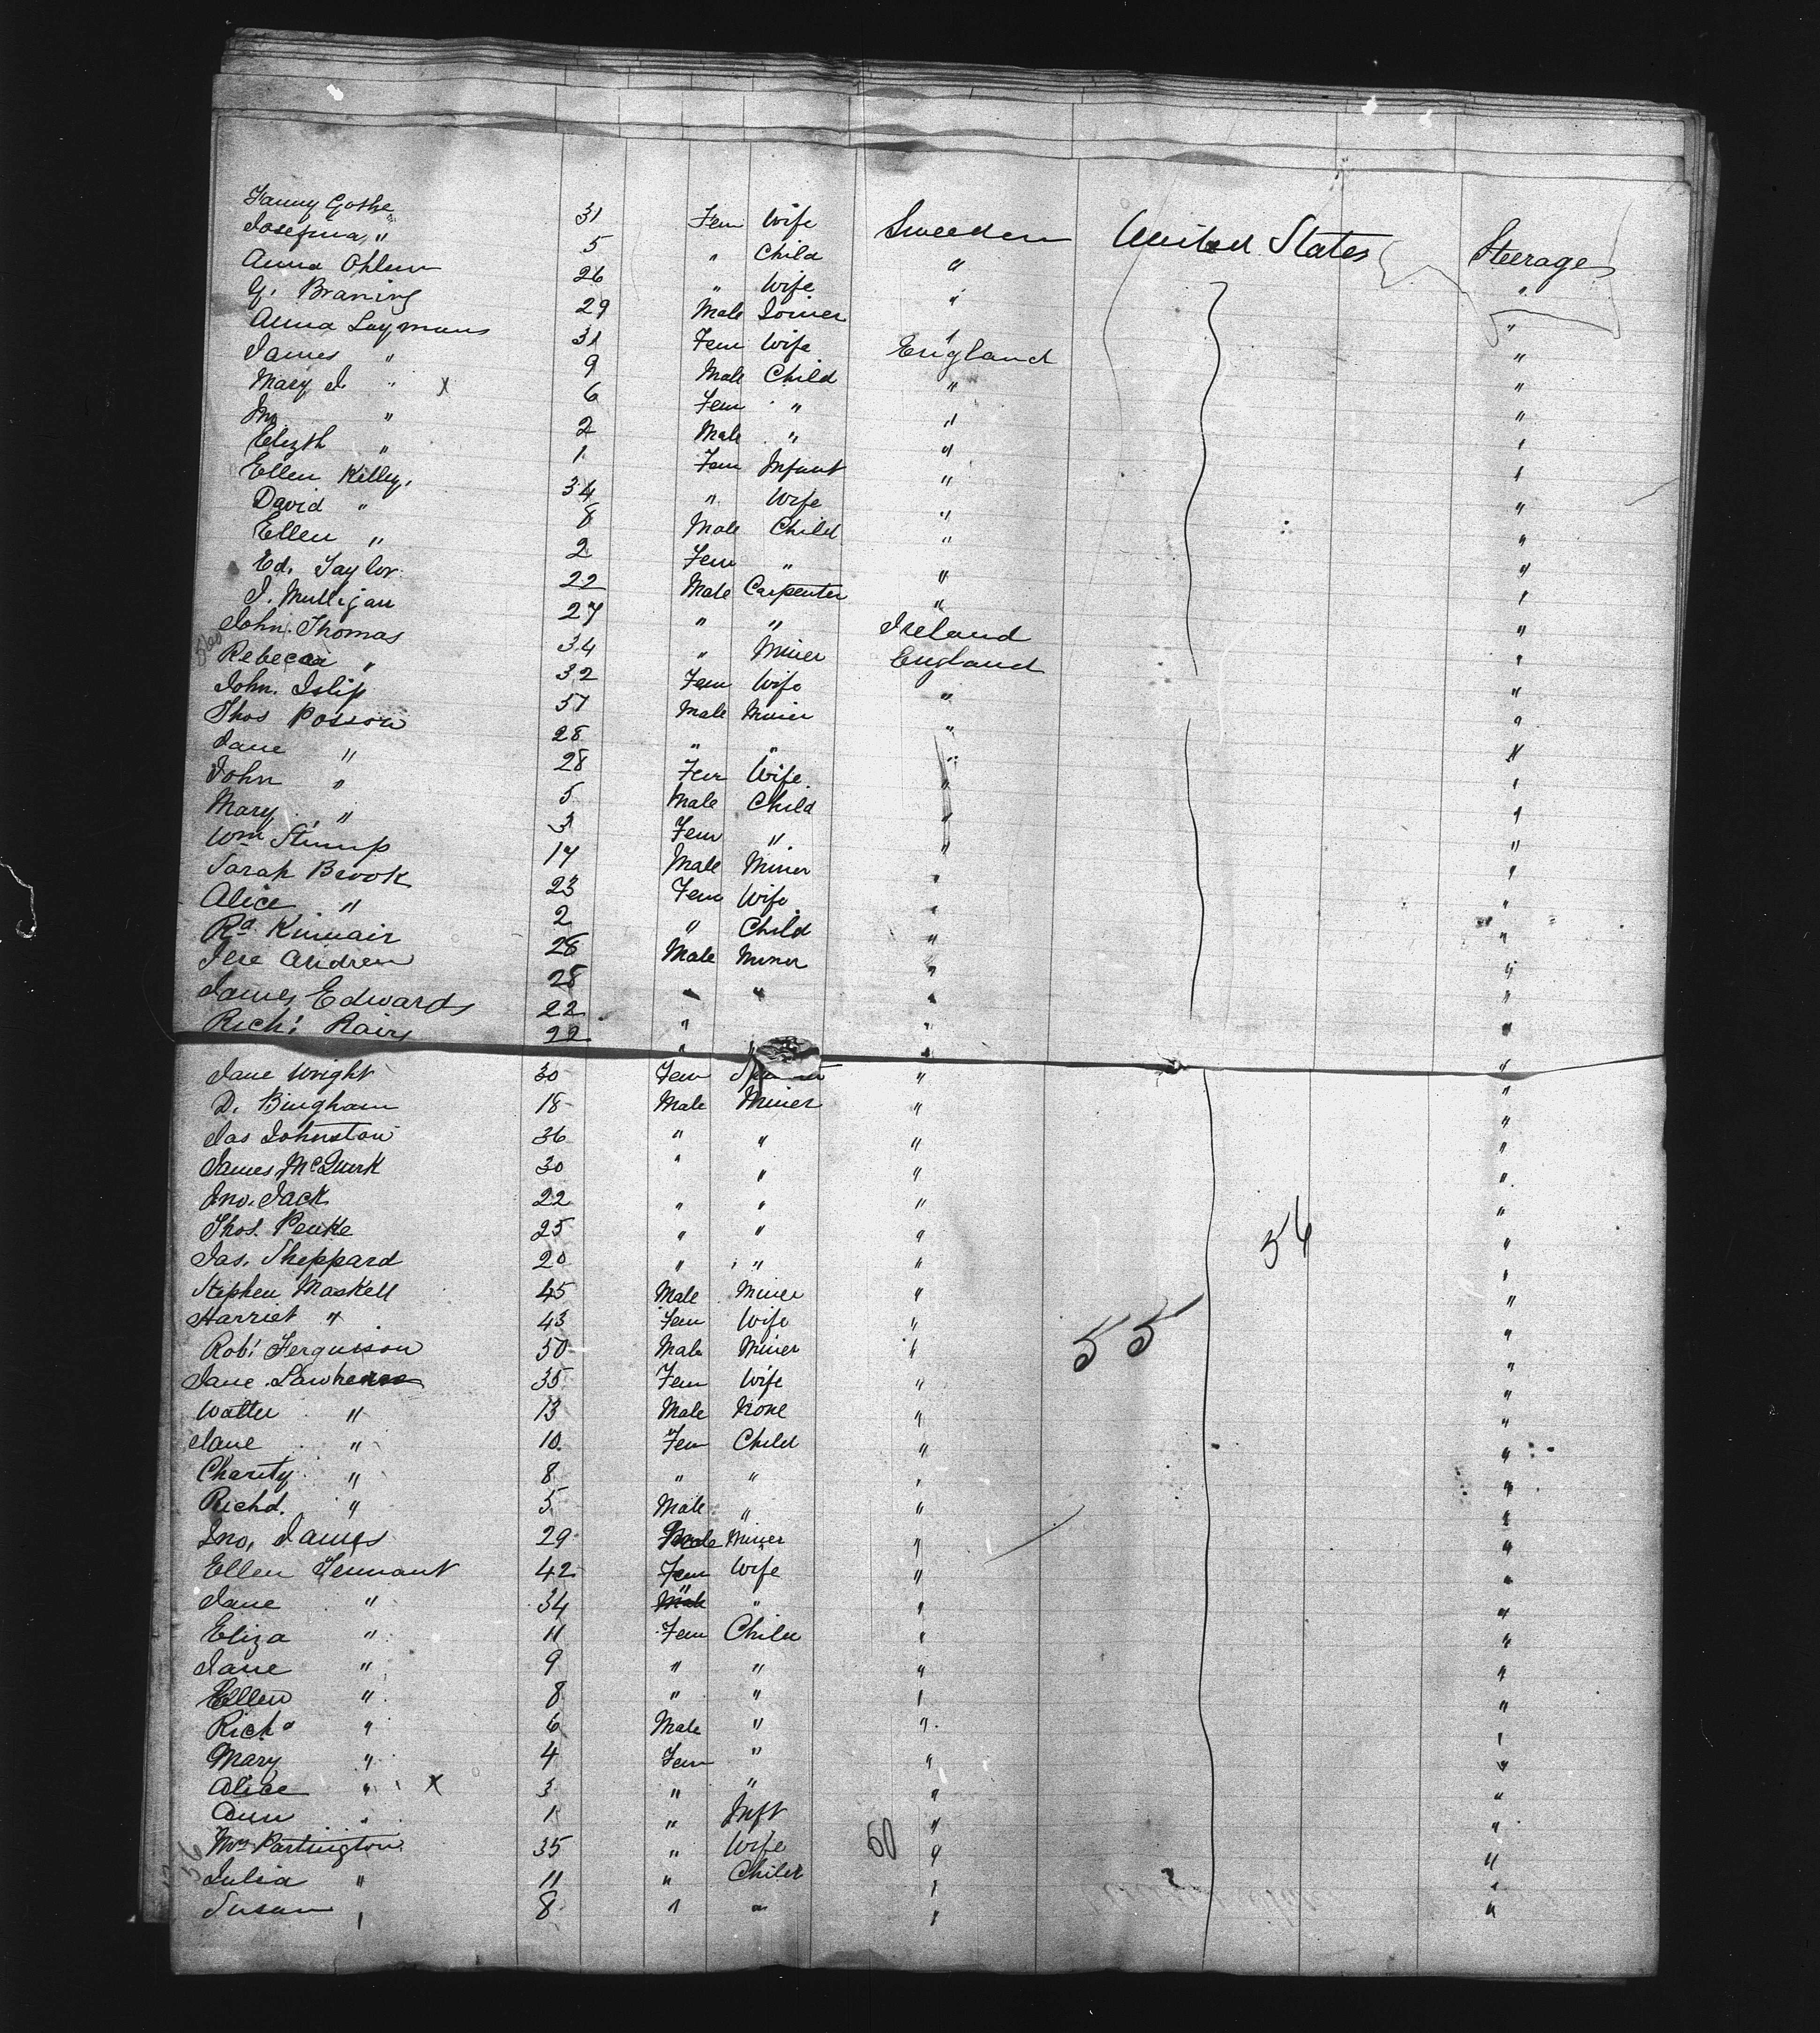 Fanny Gothe 31 Fem Wife Sweeden United States Steerage
Josefina " 5 " Child " "
Anna Ohlum 26 " Wife " "
G. Braning 29 Male Joiner " "
Anna Laymans 31 Fem Wife England "
James " 9 Male Child " "
Mary J. " X 6 Fem " " "
Jno " 2 Male " " "
Elizth " 1 Fem Infant " "
Ellen Killey. 34 " Wife " "
David " 8 Male Child " "
Ellen " 2 Fem " " "
Ed. Taylor 22 Male Carpenter " "
J. Mulligan 27 " " Ireland "
John Thomas 34 " Miner England "
Rebecca " 32 Fem Wife " "
John. Islip 57 Male Miner " "
Thos 28 " " " "
Jane " 28 Fem Wife " "
John " 5 Male Child " "
Mary " 3 Fem " " "
Wm Stump 17 Male Miner " "
Sarah Brook 23 Fem Wife " "
Alice " 2 " Child " "
Rd Kinnair 28 Male Miner " "
Jese Andrew 28 " " " "
James Edwards 22 " " " "
Richd 22 " " " "
Jane Wright 30 Fem " "
D. Bingham 18 Male Miner " "
Jas Johnston 36 " " " "
James McQuirk 30 " " " "
Jno. Jack 22 " " " "
Thos. Penke 25 " " " " 56
Jas. Sheppard 20 " " " "
Stephen Maskell 45 Male Miner " "
Harriet " 43 Fem Wife " "
Robt Ferguison 50 Male Miner " 55 "
Jane Lawhence 35 Fem Wife " "
Walter " 13 Male None " "
Jane " 10 Fem Child " "
Charity " 8 " " " "
Richd. " 5 Male " " "
Jno. James 29 Male Miner " "
Ellen Tennant 42 Fem Wife " "
Jane " 34 " " " "
Eliza " 11 Fem Child " "
Jane " 9 " " " "
Ellen " 8 " " " "
Richd " 6 Male " " "
Mary " 4 Fem " " "
Alice " X 3 " " " "
Ann " 1 " Inft " "
Mrs Partington 35 " Wife 60 " "
Julia " 11 " Child " "
Susan " 8 " " " "